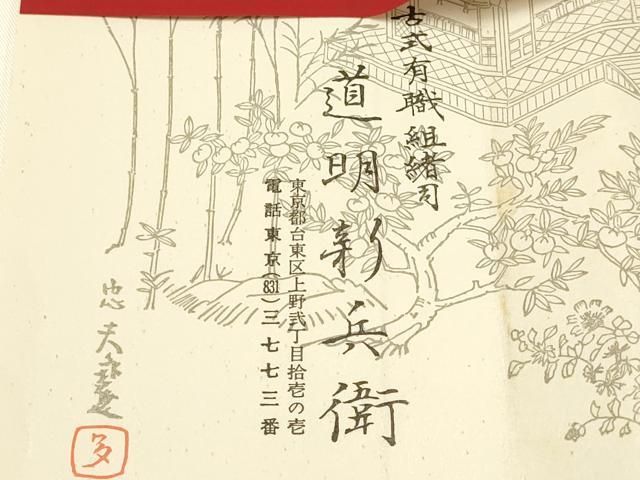 古式有職組緒司
道明新兵衛
東京都台東区上野弐丁目拾壱の壱
電話東京(831)三七七三番
忠夫